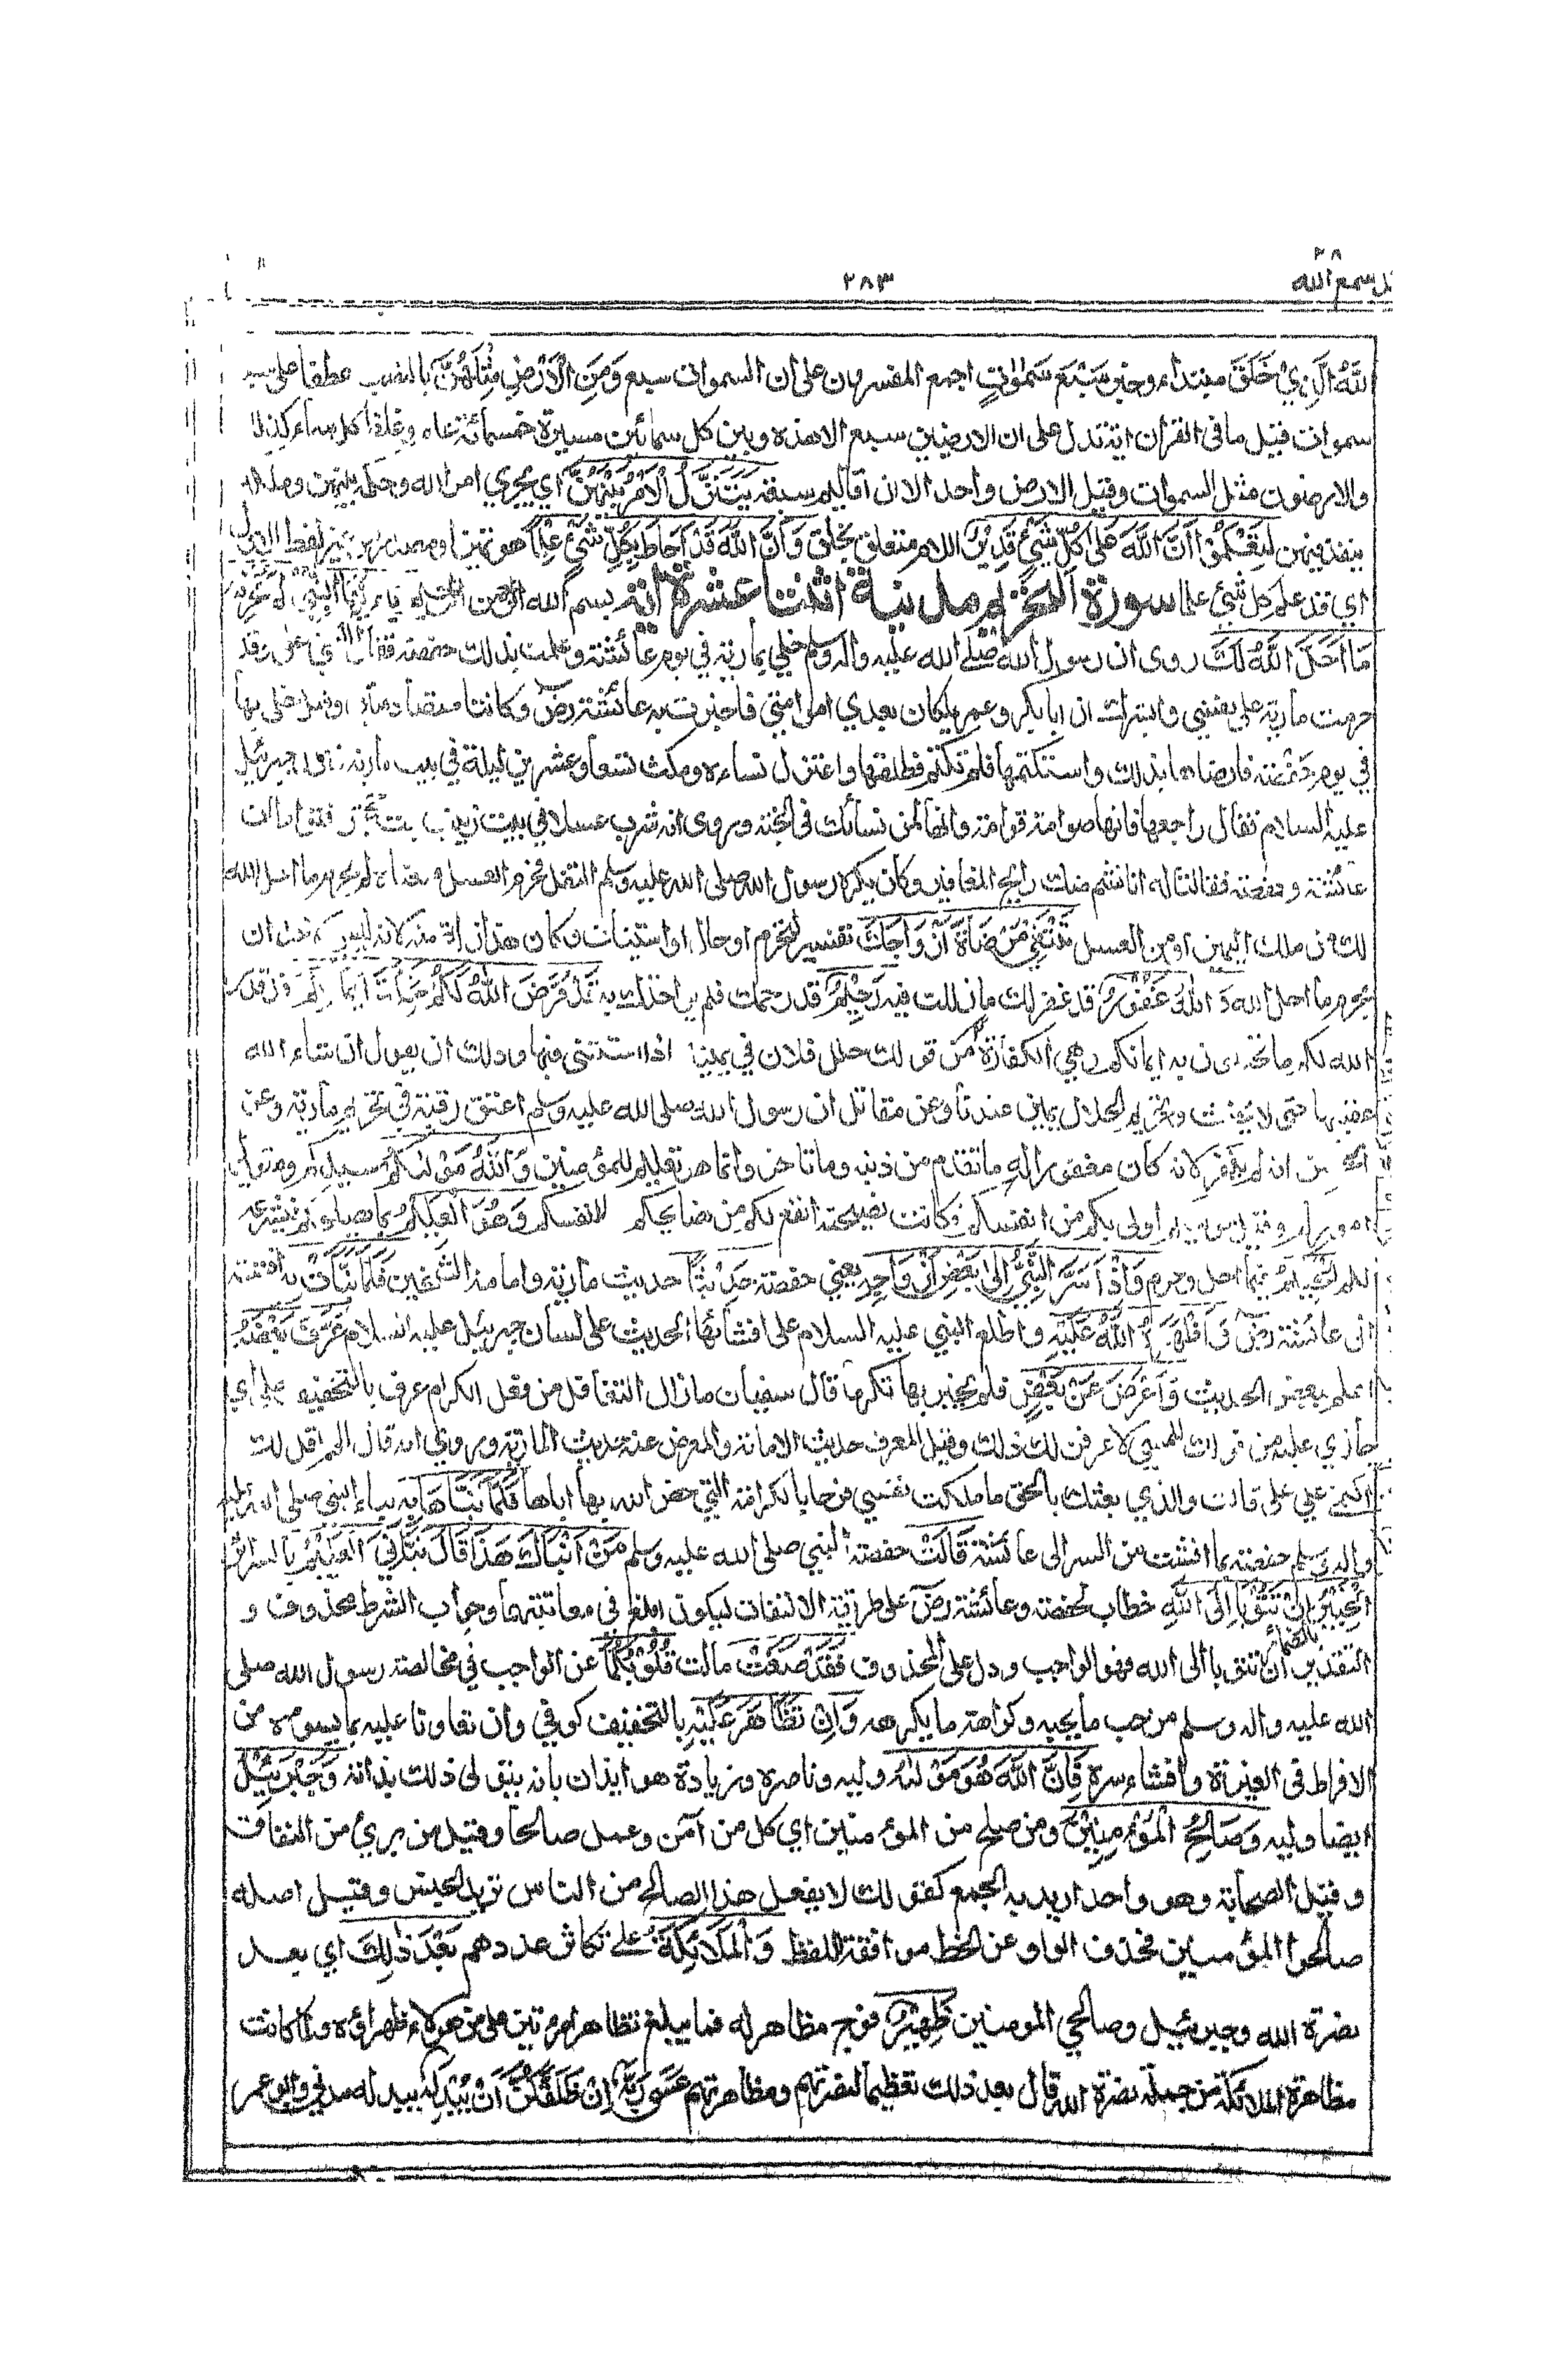 ٢٨
قد سمع الله
٢٨٣
اللَّهُ الَّذِيْ خَلَقَ مبتدأ وخبر سَبْعَ سَمٰوٰتٍ اجمع المفسرون على ان السموات سبع وَمِنَ الْاَرْضِ مِثْلَهُنَّ بالنصب عطفا على سبع
سموات قيل ما في القرآن اية تدل على ان الارضين سبع الا هذه وبين كل سمائين مسيرة خمسمائة عام وغلظ كل سماء كذلك
والارضون مثل السموات وقيل الارض واحد الا ان اقاليم سبعة يَتَنَزَّلُ الْاَمْرُ بَيْنَهُنَّ اي يجري امر الله وحكمه بينهن وملكه
ينفذ فيهن لِتَعْلَمُوْا اَنَّ اللّٰهَ عَلٰى كُلِّ شَيْءٍ قَدِيْرٌ اللام متعلق بخلق وَاَنَّ اللّٰهَ قَدْ اَحَاطَ بِكُلِّ شَيْءٍ عِلْمًا هو تميز او مصدر من غير لفظ الاول
اي قد علم كل شيء علما سورة التحريم مدنية اثنتا عشرة اية بسم الله الرحمن الرحيم يٰاَيُّهَا النَّبِيُّ لِمَ تُحَرِّمُ
مَا اَحَلَّ اللّٰهُ لَكَ روى ان رسول الله صلى الله عليه واله وسلم خلي بمارية في يوم عائشة وعلمت بذلك حفصة فقال اكتمي علي وقد
حرمت مارية على نفسي وابشرك ان ابا بكر وعمر يملكان بعدي امر امتي فاخبرت به عائشة رض وكانتا متصادقتين وقيل خلي بها
في يوم حفصة فارضاها بذلك واستكتمها فلم تكتم فطلقها واعتزل نساءه ومكث تسعا وعشرين ليلة في بيت مارية فنزل جبرئيل
عليه السلام فقال راجعها فانها صوامة قوامة وانها لمن نسائك في الجنة وروى انه شرب عسلا في بيت زينب بنت جحش فتواطأت
عائشة وحفصة فقالتا له انا نشم منك رايح المغافير وكان يكره رسول الله صلى الله عليه وسلم التفل فحرم العسل فمعناه لم تحرم ما احل الله
لك من ملك اليمين او من العسل تَبْتَغِيْ مَرْضَاةَ اَزْوَاجِكَ تفسير لتحرم او حال او استيناف وكان هذا زلة منه لانه ليس لاحد ان
يحرم ما احل الله وَاللّٰهُ غَفُوْرٌ قد غفر لك ما زللت فيه رَحِيْمٌ قد رحمك فلم يواخذك به قَدْ فَرَضَ اللّٰهُ لَكُمْ تَحِلَّةَ اَيْمَانِكُمْ قد قدر
الله لكم ما تحللون به ايمانكم وهي الكفارة من قولك حلل فلان في يمينه اذا استثنى فيها وذلك ان يقول ان شاء الله
عقيبها حتى لا يحنث وتحريم الحلال يمين عندنا وعن مقاتل ان رسول الله صلى الله عليه وسلم اعتق رقبة في تحريم مارية وعن
الحسن انه لم يكفر لانه كان مغفورا له ما تقدم من ذنبه وما تاخر وانما هو تعليم للمؤمنين وَاللّٰهُ مَوْلٰىكُمْ سيدكم ومتولي
اموركم وقيل موليكم اولى بكم من انفسكم وكانت نصيحته انفع لكم من نصايحكم لانفسكم وَهُوَ الْعَلِيْمُ بما يصلحكم فيشرعه
لكم الْحَكِيْمُ فيما احل وحرم وَاِذْ اَسَرَّ النَّبِيُّ اِلٰى بَعْضِ اَزْوَاجِهٖ يعني حفصة حَدِيْثًا حديث مارية وامامة الشيخين فَلَمَّا نَبَّاَتْ بِهٖ افشته
الى عائشة رض وَاَظْهَرَهُ اللّٰهُ عَلَيْهِ واطلع النبي عليه السلام على افشائها الحديث على لسان جبرئيل عليه السلام عَرَّفَ بَعْضَهٗ
اعلم ببعض الحديث وَاَعْرَضَ عَنْ بَعْضٍ فلم يخبر بها تكرما قال سفيان مازال التغافل من فعل الكرام عرف بالتخفيف علي اي
جازي عليه من قولك للمسيء لاعرفن لك ذلك وقيل المعرف حديث الامامة والمعرض عنه حديث المارية وروي انه قال الم اقل لك
اكتمي علي قالت والذي بعثك بالحق ما ملكت نفسي فرحا بالكرامة التي خص الله بها اباها فَلَمَّا نَبَّاَهَا بِهٖ نباء النبي صلى الله عليه
واله وسلم حفصة بما افشت من السر الى عائشة قَالَتْ حفصة للنبي صلى الله عليه وسلم مَنْ اَنْبَاَكَ هٰذَا قَالَ نَبَّاَنِيَ الْعَلِيْمُ بالسرائر
الْخَبِيْرُ بالضمائر اِنْ تَتُوْبَا اِلَى اللّٰهِ خطاب لحفصة وعائشة رض على طريقة الالتفات ليكون ابلغ في معاتبتهما وجواب الشرط محذوف و
التقدير ان تتوبا الى الله فهو الواجب ودل على المحذوف فَقَدْ صَغَتْ مالت قُلُوْبُكُمَا عن الواجب في مخالصة رسول الله صلى
الله عليه واله وسلم من حب ما يحبه وكراهة ما يكرهه وَاِنْ تَظَاهَرَا عَلَيْهِ بالتخفيف كوفي وان تعاونا عليه بما يسوءه من
الافراط في الغيرة وافشاء سره فَاِنَّ اللّٰهَ هُوَ مَوْلٰىهُ وليه وناصره وزيادة هو ايذان بانه يتولى ذلك بذاته وَجِبْرَئِيْلُ
ايضا وليه وَصَالِحُ الْمُؤْمِنِيْنَ ومن صلح من المؤمنين اي كل من آمن وعمل صالحا وقيل من بريء من النفاق
وقيل الصحابة وهو واحد اريد به الجمع كقولك لا يفعل هذا الصالح من الناس تريد الجنس وقيل اصله
صالحوا المؤمنين فحذف الواو عن الخط موافقة للفظ وَالْمَلَائِكَةُ على تكاثر عددهم بَعْدَ ذٰلِكَ اي بعد
نصرة الله وجبرئيل وصالحي المومنين ظَهِيْرٌ فوج مظاهر له فما يبلغ تظاهر امرءتين على من هؤلاء ظهراؤه ولما كانت
مظاهرة الملائكة من جملة نصرة الله قال بعد ذلك تعظيما لنصرتهم ومظاهرتهم عَسٰى رَبُّهٗ اِنْ طَلَّقَكُنَّ اَنْ يُبْدِلَهٗ يبدله مدني وابو عمرو